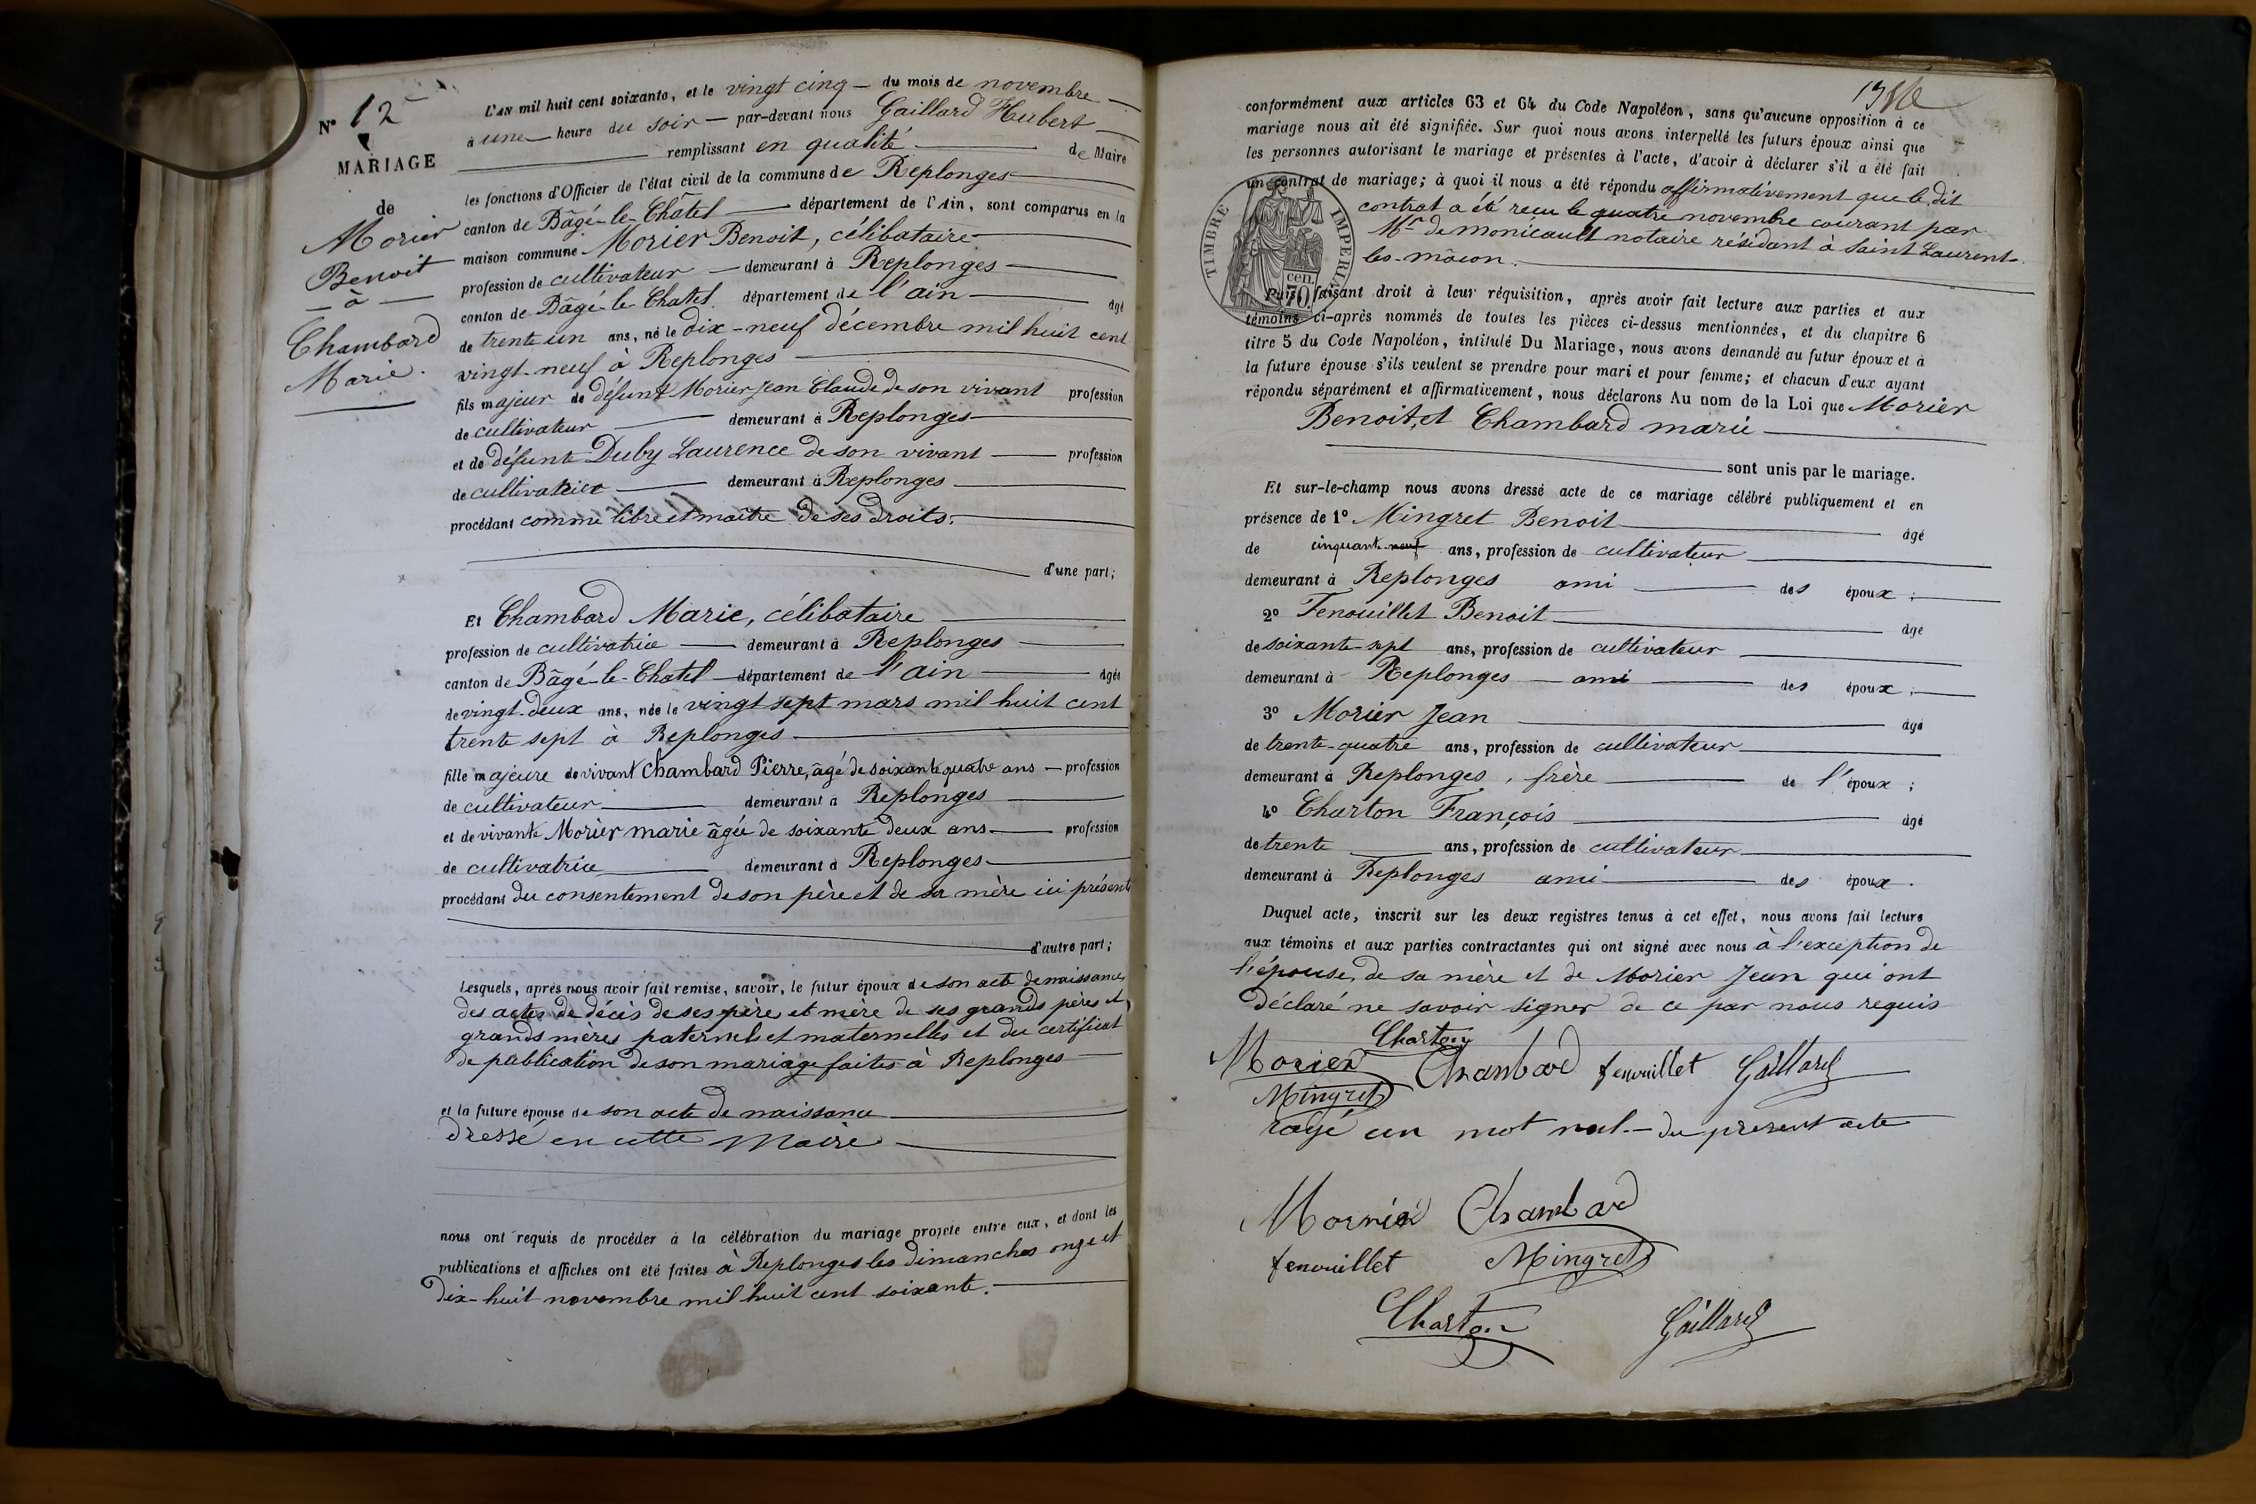 N° 12
MARIAGE
de
Morier
Benoit
— à —
Chambard
Marie.
L'AN mil huit cent soixante, et le vingt cinq — du mois de novembre
à une heure du soir — par-devant nous Gaillard Hubert
remplissant en qualité de Maire
les fonctions d'Officier de l'état civil de la commune de Replonges
canton de Bâgé-le-Châtel département de l'Ain, sont comparus en la
maison commune Morier Benoit, célibataire
profession de cultivateur — demeurant à Replonges
canton de Bâgé-le-Chatel département de l'ain âgé
de trente un ans, né le dix-neuf décembre mil huit cent
vingt-neuf à Replonges
fils majeur de défunt Morier Jean Claude de son vivant profession
de cultivateur demeurant à Replonges
et de défunte Duby Laurence de son vivant profession
de cultivatrice demeurant à Replonges
procédant comme libre et maître de ses droits.
d'une part;
Et Chambard Marie, célibataire
profession de cultivatrice demeurant à Replonges
canton de Bâgé-le-Chatel département de l'ain âgée
de vingt-deux ans, née le vingt sept mars mil huit cent
trente sept à Replonges
fille majeure de vivant Chambard Pierre, âgé de soixante quatre ans — profession
de cultivateur demeurant à Replonges
et de vivante Morier marie âgée de soixante deux ans — profession
de cultivatrice demeurant à Replonges
procédant du consentement de son père et de sa mère ici présents
d'autre part;
Lesquels, après nous avoir fait remise, savoir, le futur époux de son acte de naissance,
des actes de décès de ses père et mère de ses grands pères et
grands mères paternels et maternelles et du certificat
de publication de son mariage faites à Replonges
et la future épouse de son acte de naissance
dressé en cette Mairie
nous ont requis de procéder à la célébration du mariage projeté entre eux, et dont les
publications et affiches ont été faites à Replonges les dimanches onze et
dix-huit novembre mil huit cent soixante.
conformément aux articles 63 et 64 du Code Napoléon, sans qu'aucune opposition à ce
mariage nous ait été signifiée. Sur quoi nous avons interpellé les futurs époux ainsi que
les personnes autorisant le mariage et présentes à l'acte, d'avoir à déclarer s'il a été fait
un contrat de mariage; à quoi il nous a été répondu affirmativement que le dit
contrat a été reçu le quatre novembre courant par
Mr de Monicault notaire résidant à Saint Laurent
les-mâcon.
TIMBRE IMPERIAL
70 cen.
Puis faisant droit à leur réquisition, après avoir fait lecture aux parties et aux
témoins ci-après nommés de toutes les pièces ci-dessus mentionnées, et du chapitre 6
titre 5 du Code Napoléon, intitulé Du Mariage, nous avons demandé au futur époux et à
la future épouse s'ils veulent se prendre pour mari et pour femme; et chacun d'eux ayant
répondu séparément et affirmativement, nous déclarons Au nom de la Loi que Morier
Benoit, et Chambard marie
sont unis par le mariage.
Et sur-le-champ nous avons dressé acte de ce mariage célébré publiquement et en
présence de 1° Mingret Benoit âgé
de cinquante neuf ans, profession de cultivateur
demeurant à Replonges ami des époux ;
2° Fenouillet Benoit âgé
de soixante-sept ans, profession de cultivateur
demeurant à Replonges — ami des époux ;
3° Morier Jean âgé
de trente-quatre ans, profession de cultivateur
demeurant à Replonges, frère de l'époux ;
4° Charton François âgé
de trente ans, profession de cultivateur
demeurant à Replonges ami des époux.
Duquel acte, inscrit sur les deux registres tenus à cet effet, nous avons fait lecture
aux témoins et aux parties contractantes qui ont signé avec nous à l'exception de
l'épouse, de sa mère et de Morier Jean qui ont
déclaré ne savoir signer de ce par nous requis
Charton
Morier Chambard fenouillet Gaillard
Mingret
rayé un mot nul — du present acte
Morier Chambard
fenouillet Mingret
Charton Gaillard